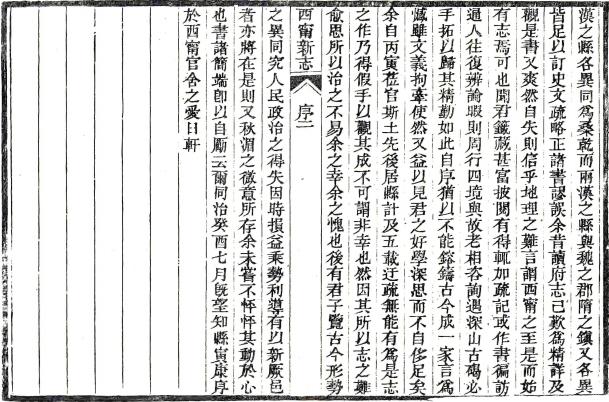 漢之縣各異同爲桑乾而兩漢之縣與魏之郡隋之鎭又各異
皆足以訂史文疏略正諸書謬誤余昔讀府志已歎爲精詳及
觀是書又爽然自失則信乎地理之難言謂西甯之至是而始
有志焉可也聞君籤藏甚富披閱有得輒加疏記或作書徧訪
通人往復辨論暇則周行四境與故老相咨詢遇深山古碣必
手拓以歸其精勤如此自序猶以不能鎔鑄古今成一家言爲
憾雖文義拘牽使然又益以見君之好學深思而不自侈足矣
余自丙寅莅官斯土先後居縣計及五載迂疏無能有爲是志
之作乃得假手以觀其成不可謂非幸也然因其所以志之難
愈思所以治之不易余之幸余之愧也後有君子覽古今形勢
西甯新志
序二
之異同究人民政治之得失因時損益乘勢利導有以新厥邑
者亦將在是則又秋湄之微意所存余未嘗不怦怦其動於心
也書諸簡端卽以自勵云爾同治癸酉七月旣望知縣寅康序
於西甯官舍之愛日軒